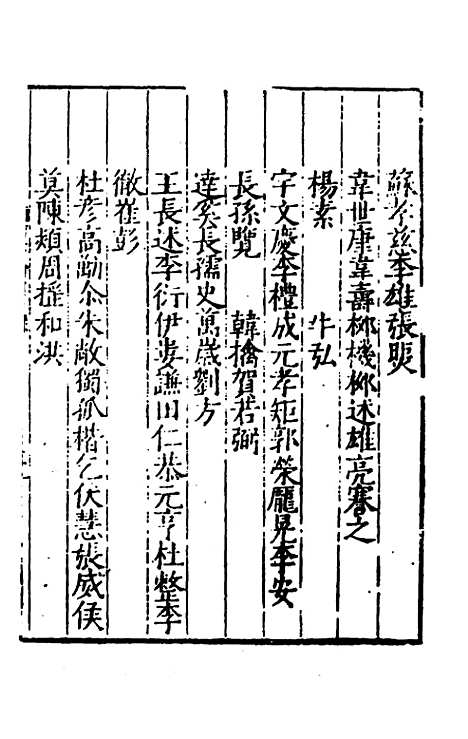 蘇孝慈李雄張煚
韋世康韋壽柳機柳述雄亮謇之
楊素　牛弘
宇文慶李禮成元孝矩郭榮龐晃李安
長孫覽　韓擒賀若弼
達奚長孺史萬歲劉方
王長述李衍伊婁謙田仁恭元亨杜整李
徹崔彭
杜彥高勱尒朱敞獨孤楷乞伏慧張威侯
莫陳穎周搖和洪